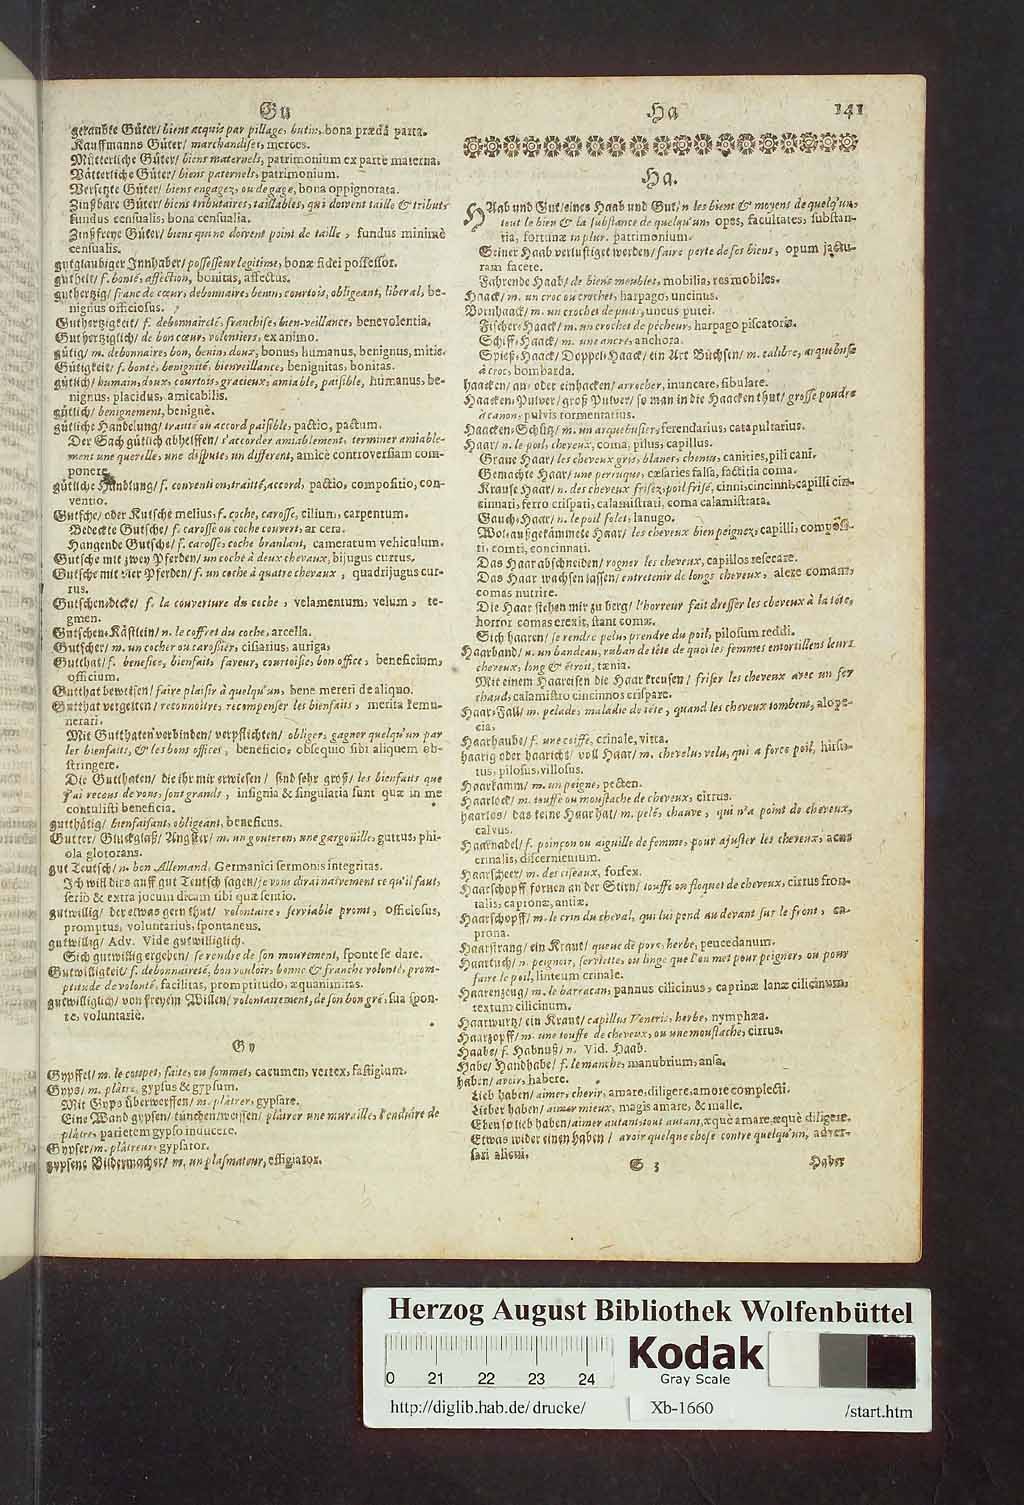 Gu
geraubte Güter/ biens acquis par pillage, butin, bona prædâ parta.
Kauffmanns Güter/ marchandises, merces.
Mütterliche Güter/ biens maternels, patrimonium ex parte materna.
Vätterliche Güter/ biens paternels, patrimonium.
Versetzte Güter/ biens engagez, ou de gage, bona oppignorata.
Zinßbare Güter/ biens tributaires, taillables, qui doivent taille & tributs
fundus censualis, bona censualia.
Zinßfreye Güter/ biens qui ne doivent point de taille, fundus minimè
censualis.
gutglaubiger Innhaber/ possesseur legitime, bonæ fidei possessor.
gutheit/ f. bonté, affection, bonitas, affectus.
guthertzig/ franc de cœur, debonnaire, benin, courtois, obligeant, liberal, be-
nignus officiosus.
Guthertzigkeit/ f. debonnaireté, franchise, bien-veillance, benevolentia.
Guthertziglich/ de bon cœur, volontiers, ex animo.
gütig/ m. debonnaire, bon, benin, doux, bonus, humanus, benignus, mitis.
Gütigkeit/ f. bonté, benignité, bienveillance, benignitas, bonitas.
gütlich/ humain, doux, courtois, gracieux, amiable, paisible, humanus, be-
nignus, placidus, amicabilis.
gütlich/ benignement, benignè.
gütliche Handelung/ traité ou accord paisible, pactio, pactum.
Der Sach gütlich abhelffen/ s'accorder amiablement, terminer amiable-
ment une querelle, une dispute, un different, amicè controversiam com-
ponere.
gütliche Handlung/ f. convention, traitté, accord, pactio, compositio, con-
ventio.
Gutsche/ oder Kutsche melius, f. coche, carosse, cisium, carpentum.
Bedeckte Gutsche/ f. carosse ou coche couvert, arcera.
Hangende Gutsche/ f. carosse, coche branlant, cameratum vehiculum.
Gutsche mit zwey Pferden/ un coche à deux chevaux, bijugus currus.
Gutsche mit vier Pferden/ f. un coche à quatre chevaux, quadrijugus cur-
rus.
Gutschendecke/ f. la couverture du coche, velamentum, velum, te-
gmen.
Gutschen-Kästlein/ n. le coffret du coche, arcella.
Gutscher/ m. un cocher ou carossier, cisiarius, auriga.
Gutthat/ f. benefice, bienfaits, faveur, courtoisie, bon office, beneficium,
officium.
Gutthat beweisen/ faire plaisir à quelqu'un, bene mereri de aliquo.
Gutthat vergelten/ reconnoitre, recompenser les bienfaits, merita remu-
nerari.
Mit Gutthaten verbinden/ verpflichten/ obliger, gagner quelqu'un par
les bienfaits, & les bons offices, beneficio, obsequio sibi aliquem ob-
stringere.
Die Gutthaten/ die ihr mir erwiesen/ sind sehr groß/ les bienfaits que
j'ai recous de vous, sont grands, insignia & singularia sunt quæ in me
contulisti beneficia.
gutthätig/ bienfaisant, obligeant, beneficus.
Gutter/ Gluckglaß/ Angster/ m. un gouteron, une gargoüille, guttus, phi-
ola glotorans.
gut Teutsch/ n. bon Allemand, Germanici sermonis integritas.
Ich will dirs auff gut Teutsch sagen/ je vous dirai naivement ce qu'il faut,
seriò & extra jocum dicam tibi quæ sentio.
gutwillig/ der etwas gern thut/ volontaire, serviable promt, officiosus,
promptus, voluntarius, spontaneus.
gutwillig/ Adv. Vide gutwilliglich.
Sich gutwillig ergeben/ se rendre de son mouvement, sponte se dare.
Gutwilligkeit/ f. debonnaireté, bon vouloir, bonne & franche volonté, prom-
ptitude de volonté, facilitas, promptitudo, æquanimitas.
gutwilliglich/ von freyem Willen/ volontairement, de son bon gré, sua spon-
te, voluntariè.
Gy
Gypffel/ m. le coupet, faite, ou sommet, cacumen, vertex, fastigium.
Gyps/ m. plâtre, gypsus & gypsum.
Mit Gyps überwerffen/ m. plâtrer, gypsare.
Eine Wand gypsen/ tünchen/ weissen/ plâtrer une muraille, l'enduire de
plâtre, parietem gypso inducere.
Gypser/ m. plâtreur, gypsator.
gypsene Bildermacher/ m. un plasmateur, effigiator.
Ha 141
Ha.
HAab und Gut/ eines Haab und Gut/ n les biens & moyens de quelq'un,
tout le bien & la substance de quelqu'un, opes, facultates, substan-
tia, fortunæ in plur. patrimonium.
Seiner Haab verlustiget werden/ faire perte de ses biens, opum jactu-
ram facere.
Fahrende Haab/ de biens meubles, mobilia, res mobiles.
Haack/ m. un croc ou crochet, harpago, uncinus.
Bornhaack/ m. un crochet de puits, uncus putei.
Fischer-Haack/ m. un crochet de pécheur, harpago piscatoria.
Schiff-Haack/ m. une ancre, anchora.
Spieß-Haack/ Doppel-Haack/ ein Art Büchsen/ m. calibre, arquebuse
à croc, bombarda.
haacken/ an- oder einhacken/ accrocher, inuncare, fibulare.
Haacken-Pulver/ groß Pulver/ so man in die Haacken thut/ grosse poudre
à canon, pulvis tormentarius.
Haacken-Schütz/ m. un arquebusier, ferendarius, catapultarius.
Haar/ n. le poil, cheveux, coma, pilus, capillus.
Graue Haar/ les cheveux gris, blancs, chenus, canities, pili cani.
Gemachte Haar/ une perruque, cæsaries falsa, factitia coma.
Krause Haar/ n. des cheveux frisez, poil frisé, cinni, cincinni, capilli cin-
cinnati, ferro crispati, calamistrati, coma calamistrata.
Gauch-Haar/ n. le poil folet, lanugo.
Wol-außgekämmete Haar/ les cheveux bien peignez, capilli, composi-
ti, comti, concinnati.
Das Haar abschneiden/ rogner les cheveux, capillos resecare.
Das Haar wachsen lassen/ entretenir de longs cheveux, alere comam,
comas nutrire.
Die Haar stehen mir zu berg/ l'horreur fait dresser les cheveux à la tête,
horror comas erexit, stant comæ.
Sich haaren/ se rendre pelu, prendre du poil, pilosum reddi.
Haarband/ n. un bandeau, ruban de tête de quoi les femmes entortillens leurs
cheveux, long & étroit, tænia.
Mit einem Haareisen die Haar kreusen/ friser les cheveux avec un fer
chaud, calamistro cincinnos crispare.
Haar-Fall/ m. pelade, maladie de tête, quand les cheveux tombent, alope-
cia.
Haarhaube/ f. une coiffe, crinale, vitta.
haarig oder haaricht/ voll Haar/ m. chevelu, velu, qui a force poil, hirsu-
tus, pilosus, villosus.
Haarkamm/ m. un peigne, pecten.
Haarlock/ m. touffe ou moustache de cheveux, cirrus.
haarlos/ das keine Haar hat/ m. pelé, chauve, qui n'a point de cheveux,
calvus.
Haarnadel/ f. poinçon ou aiguille de femme, pour ajuster les cheveux, acus
crinalis, discerniculum.
Haarscheer/ m. des ciseaux, forfex.
Haarschopff fornen an der Stirn/ touffe ou floquet de cheveux, cirrus fron-
talis, capronæ, antiæ.
Haarschopff/ m. le crin du cheval, qui lui pend au devant sur le front, ca-
prona.
Haarstrang/ ein Kraut/ queue de porc, herbe, peucedanum.
Haartuch/ n. peignoir, serviette, ou linge que l'on met pour peigner, ou pour
faire le poil, linteum crinale.
Haarenzeug/ m. le barracan, pannus cilicinus, caprinæ lanæ cilicinum,
textum cilicinum.
Haarwurtz/ ein Kraut/ capillus Veneris, herbe, nymphæa.
Haarzopff/ m. une touffe de cheveux, ou une moustache, cirrus.
Haabe/ f. Habnuß/ n. Vid. Haab.
Habe/ Handhabe/ f. le manche, manubrium, ansa.
haben/ avoir, habere.
Lieb haben/ aimer, cherir, amare, diligere, amore complecti.
Lieber haben/ aimer mieux, magis amare, & malle.
Eben so lieb haben/ aimer autant, tout autant, æquè amare, æquè diligere.
Etwas wider einen haben/ avoir quelque chose contre quelqu'un, adver-
sari alicui.
S 3 Haber
Herzog August Bibliothek Wolfenbüttel
Kodak
Gray Scale
0 21 22 23 24
http://diglib.hab.de/drucke/ Xb-1660 /start.htm